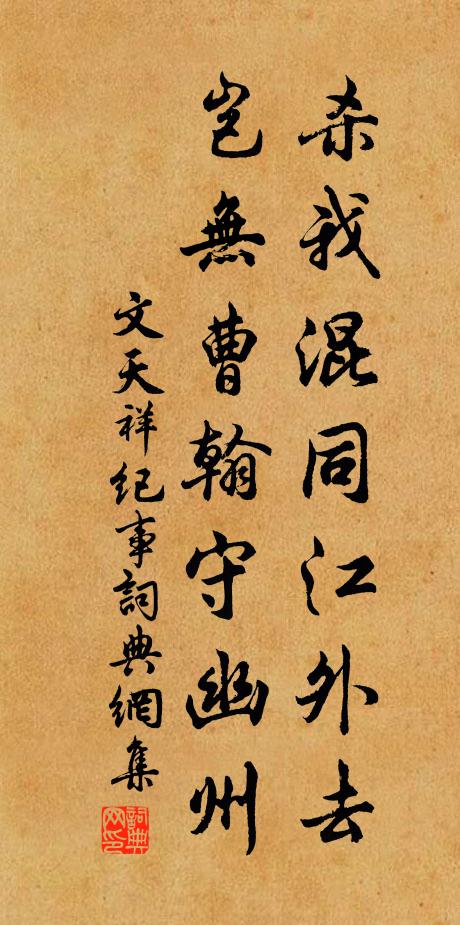 杀我混同江外去
岂無曹翰守幽州
文天祥纪事詞典網集
詞典网印